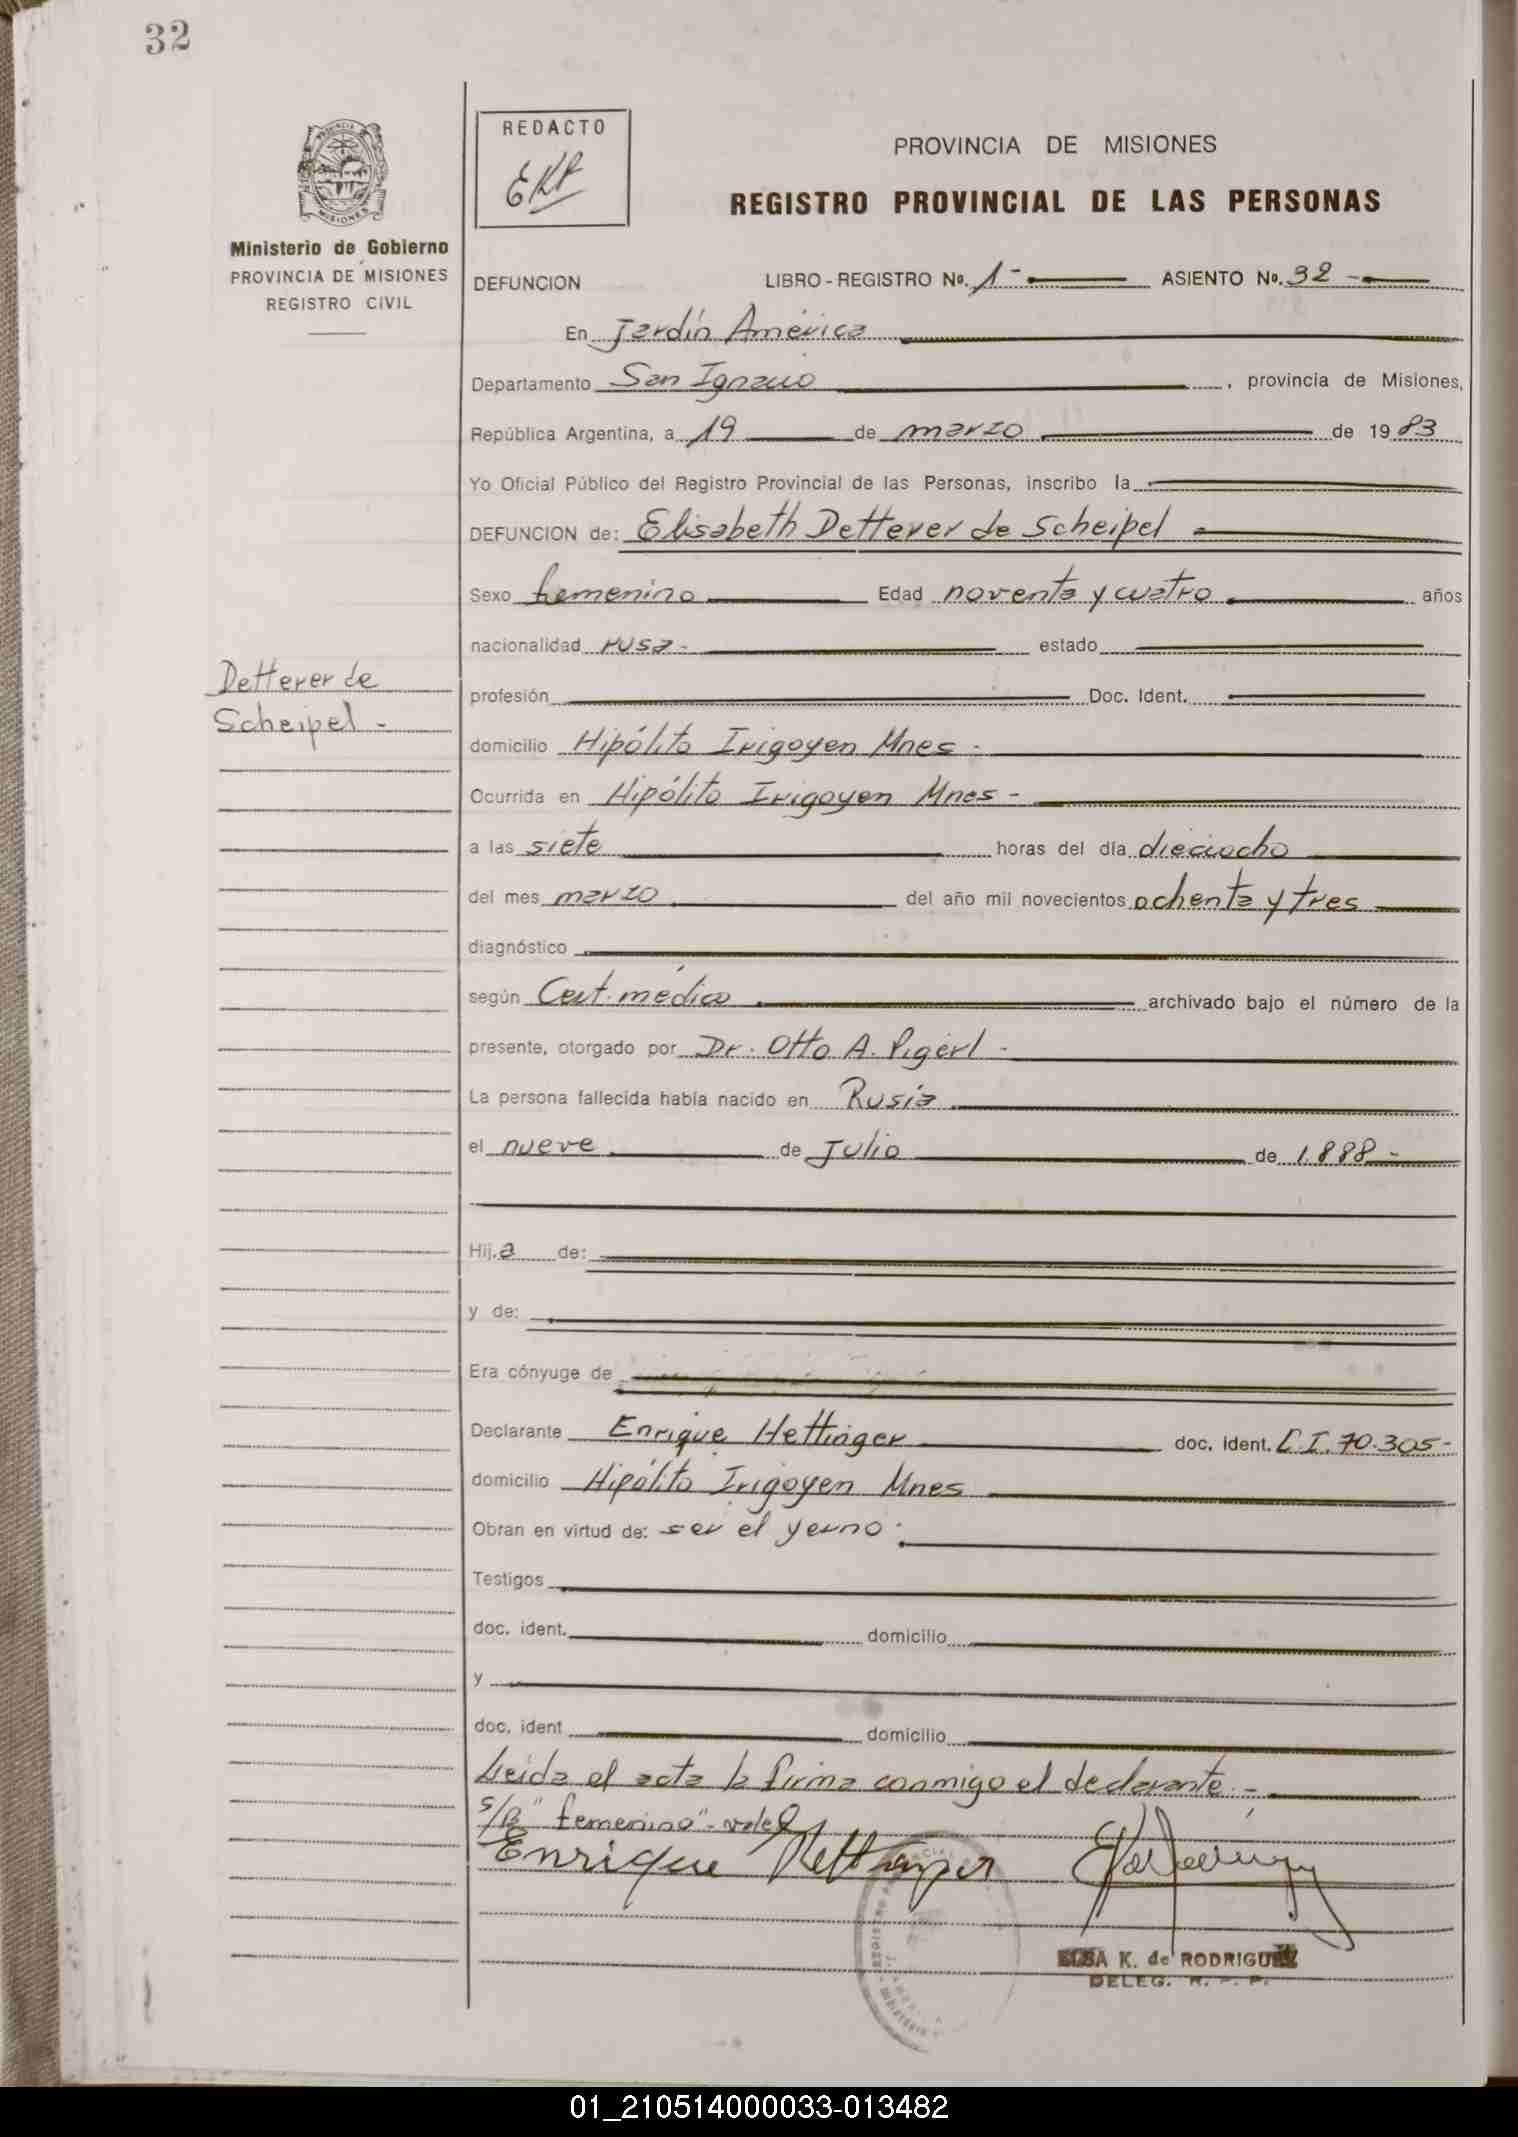 32
REDACTO
PROVINCIA DE MISIONES
REGISTRO PROVINCIAL DE LAS PERSONAS
Ministerio de Gobierno
PROVINCIA DE MISIONES
REGISTRO CIVIL
DEFUNCION LIBRO - REGISTRO No. 1 - ASIENTO No. 32 -
En Jardín América
Departamento San Ignacio , provincia de Misiones,
República Argentina, a 19 de marzo de 1983
Yo Oficial Público del Registro Provincial de las Personas, inscribo la
DEFUNCION de: Elisabeth Detterer de Scheipel
Sexo femenino Edad noventa y cuatro años
nacionalidad rusa - estado
Detterer de
Scheipel -
profesión Doc. Ident.
domicilio Hipólito Irigoyen Mnes -
Ocurrida en Hipólito Irigoyen Mnes -
a las siete horas del día dieciocho
del mes marzo del año mil novecientos ochenta y tres
diagnóstico
según Cert. médico archivado bajo el número de la
presente, otorgado por Dr. Otto A. Pigerl -
La persona fallecida había nacido en Rusia
el nueve de Julio de 1.888 -
Hij.a de:
y de:
Era cónyuge de
Declarante Enrique Hettinger doc. ident. C.I. 70.305-
domicilio Hipólito Irigoyen Mnes
Obran en virtud de: ser el yerno.
Testigos
doc. ident. domicilio
y
doc. ident domicilio
Leída el acta la firma conmigo el declarante. -
s/R "femenino" - vale
Enrique Hettinger
ELSA K. de RODRIGUEZ
DELEG. R. P. P.
01_210514000033-013482